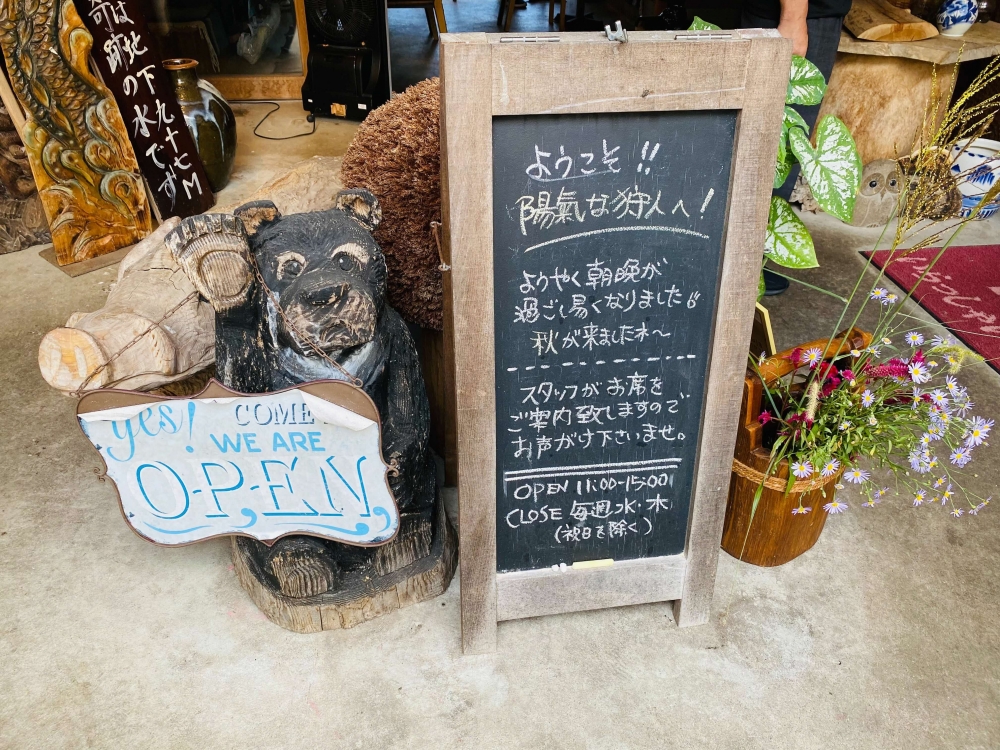 は地下九十七M
跡の水です
yes! COME
WE ARE
OPEN
ようこそ!!
陽氣な狩人へ!
ようやく朝晩が
過ごし易くなりました
秋が来ました
スタッフがお席を
ご案内致しますので
お声がけ下さいませ。
OPEN 11:00-15:00
CLOSE 毎週水・木
(祝日を除く)